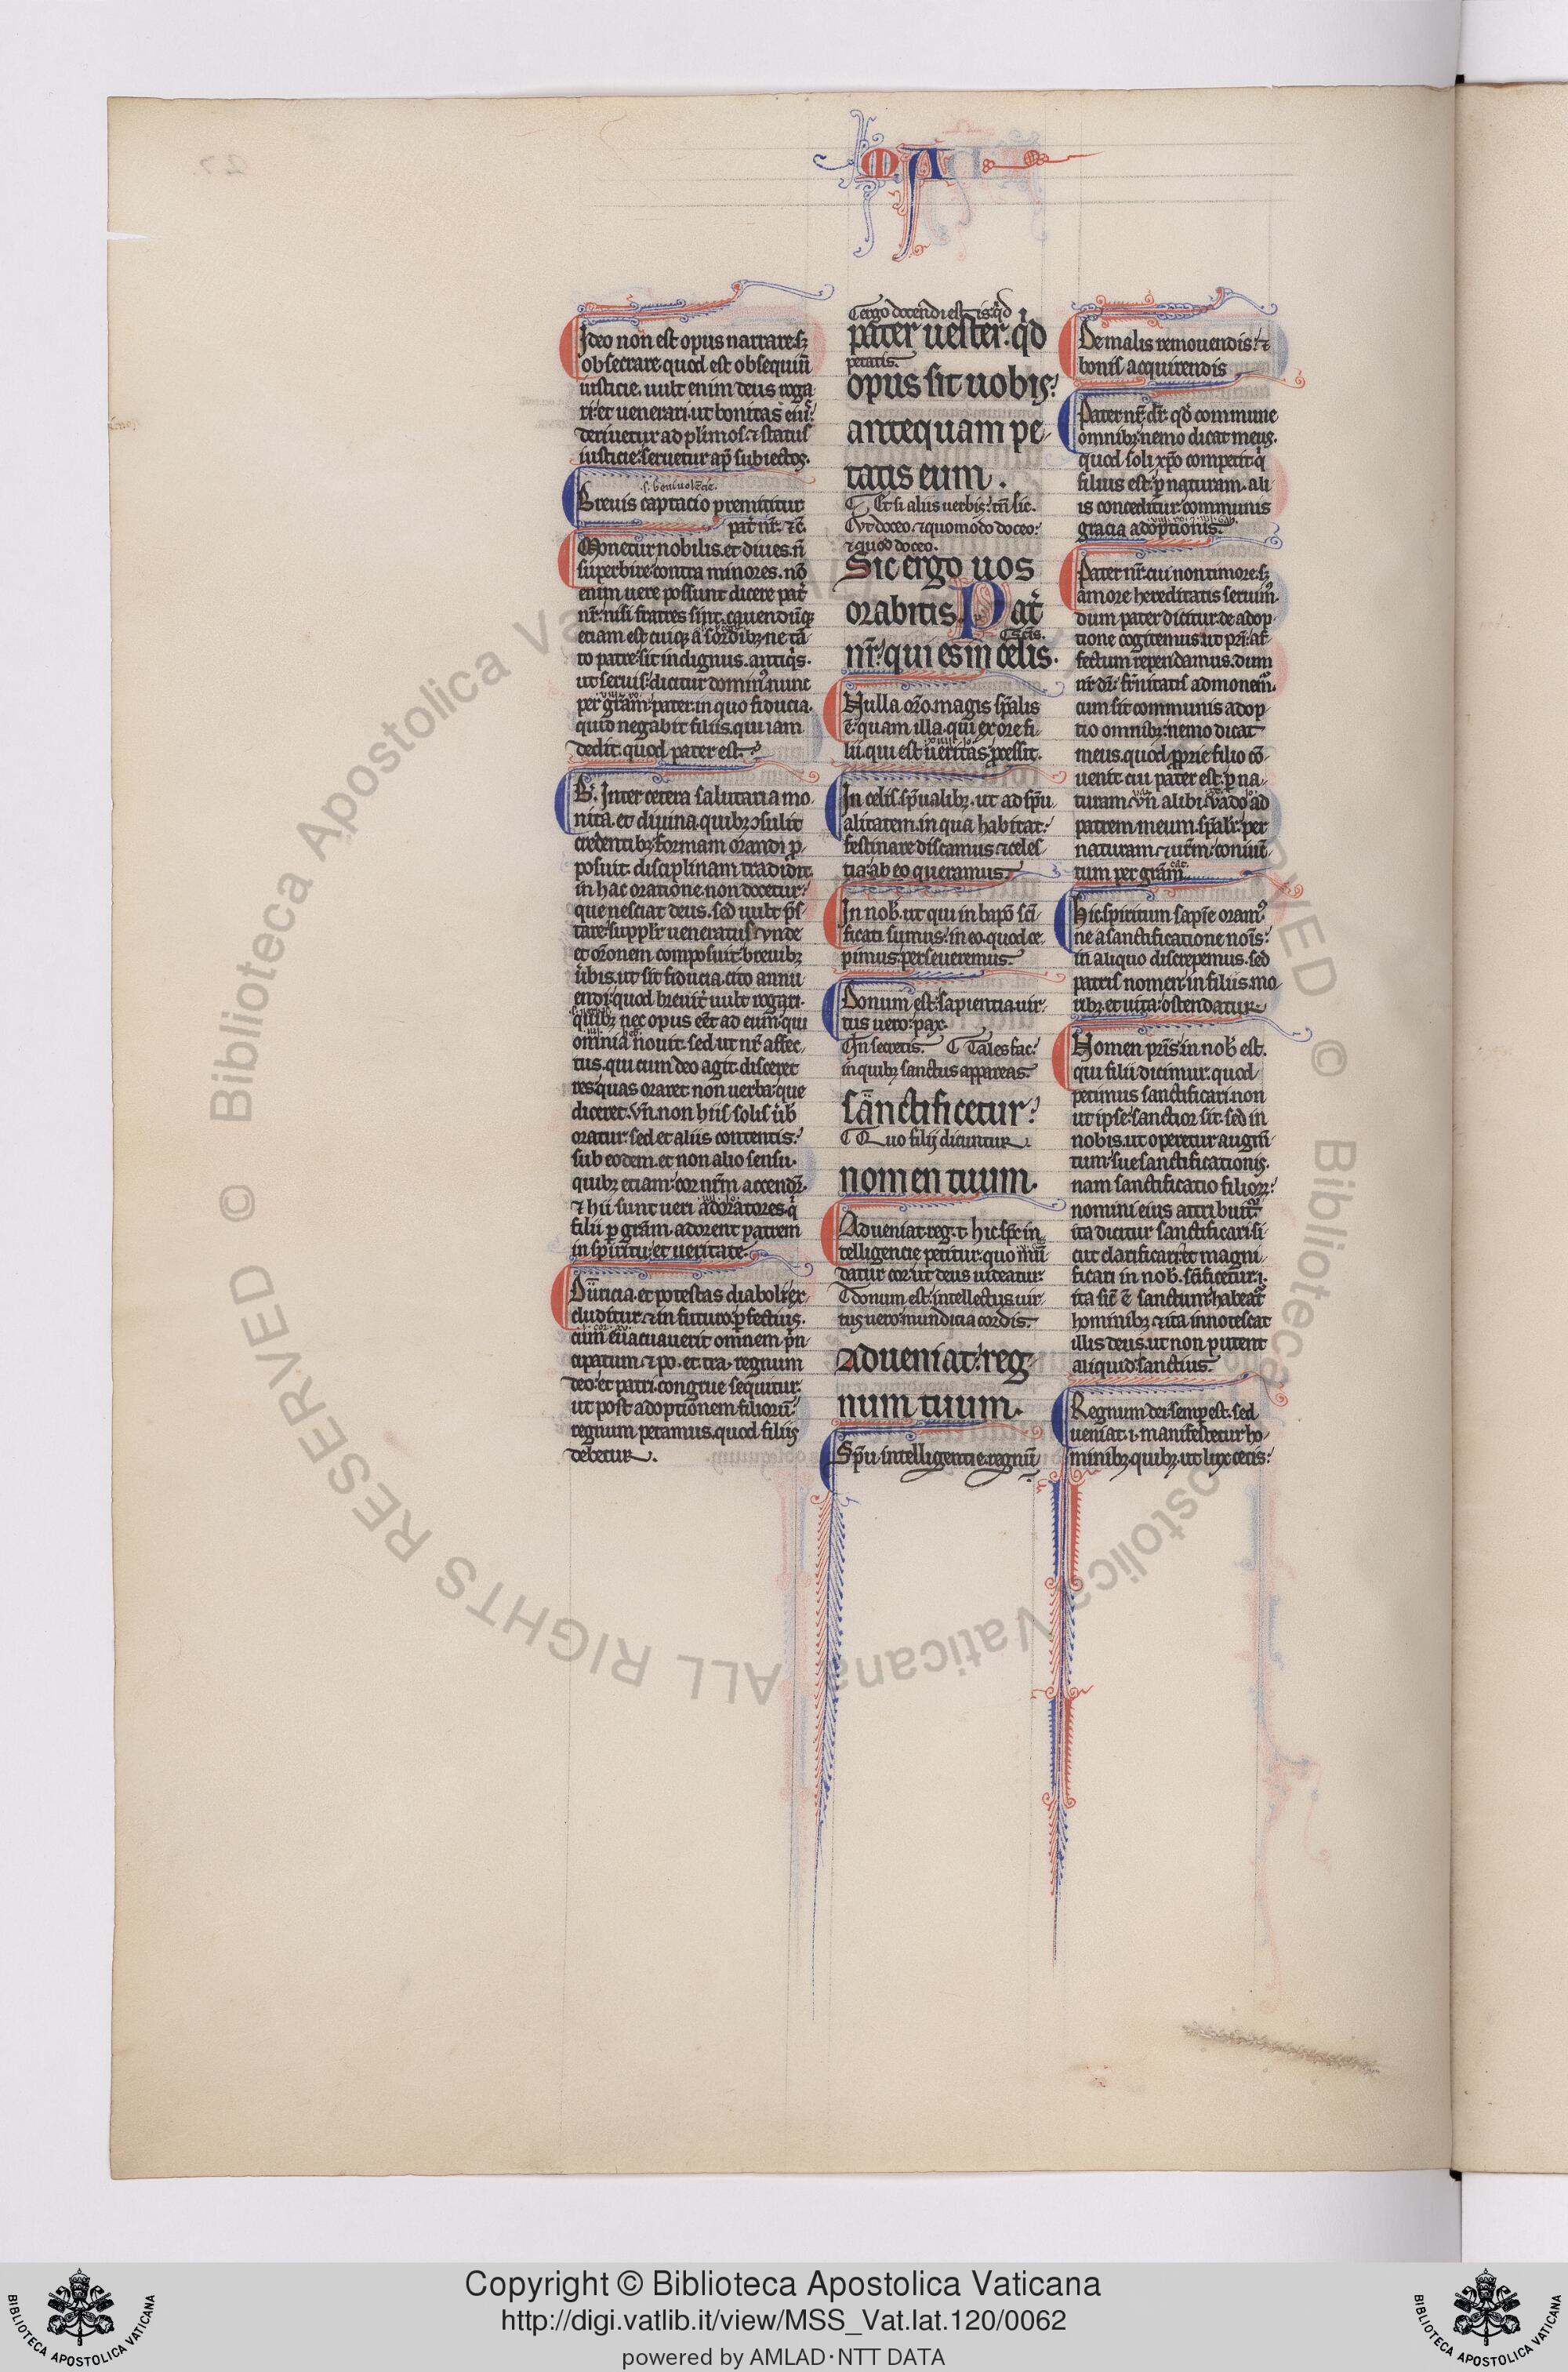 MA
Ideo non est opus narrare sꝫ
obsecrare quod est obsequiū
iusticie. uult enim deus roga
ri: et uenerari. ut bonitas eiꝰ:
deriuetur ad plimos. ⁊ status
iusticie: seruetur ap̄ subiectos.
.s. beniuolēcie.
Breuis captacio premittitur
pat̄ nr̄: ⁊c̄.
Monetur nobilis. et diues. n̄
superbire contra minores. nō
enim uere possunt dicere pat̄
nr̄: nisi fratres sint. cauendūqꝫ
etiam est cuiqꝫ a sordibꝫ. ne tā
to patre: sit indignus. antiq̇s.
ut seruis: dicitur dominꝰ. nunc
per grām: pater. in quo fiducia.
quid negabit filiis. qui iam
dedit. quod pater est.
B. Inter cetera salutaria mo
nita. et diuina. quibꝫ ↄsulit
credentibꝫ: formam orandi ꝓ
posuit. disciplinam tradidit.
in hac oratione. non docetur:
que nesciat deus. sed uult p̄s
tare: suppl̄r ueneratus. vnde
et orōnem composuit: breuibꝫ
u̇bis. ut sit fiducia. cito annu
endi. quod breuit̄ uult rogari.
quibꝫ nec opus eēt ad eum: qui
omnia nouit. sed ut nr̄ affec
tus. qui cum deo agit: disceret
res: quas oraret. non uerba: que
diceret. vn̄. non hiis solis u̇b
oratur: sed et aliis contentis:
sub eodem. et non alio sensu.
quibꝫ etiam: cor nr̄m accendr̄.
⁊ hii sunt ueri adoratores. q̇
filii ꝑ grām. adorent patrem
in spiritu: et ueritate.
Duricia. et potestas diaboli: ex
cluditur. ⁊ in futuro: ꝑfectius.
cum euacuauerit omnem p̄n
cipatum. ⁊ po. et tra. regnum
deo: et patri. congrue sequitur:
ut post adoptionem filiorū:
regnum petamus. quod filiis
debetur.
ergo docendi est is: qd̄
pater uester. qd̄
petatis.
opus sit uobis:
antequam pe
tatis eum.
Et si aliis uerbis: tn̄ sic.
Vt doceo. ⁊ quomodo doceo:
⁊ quod doceo.
Sic ergo uos
orabitis. Pat̄
nr̄: qui es in celis.
Nulla orō. magis sp̄alis
ē: quam illa. qui ex ore fi
lii. qui est ueritas: ꝓcessit.
In celis: sp̄ualibꝫ. ut ad sp̄u
alitatem. in qua habitat:
festinare discamus. ⁊ celes
tia: ab eo queramus.
In nob̄. ut qui in bapō sc̄i
ficati sumus: in eo. quod ce
pimus: perseueremus.
Donum est: sapientia. uir
tus uero: pax.
In secretis. Tales fac:
in quibꝫ sanctus appareas.
sanctificetur:
Quo filij dicuntur.
nomen tuum.
Adueniat. reg. t. hic sp̄c in
telligencie petitur. quo mū
datur cor: ut deus uideatur:
donum est: intellectus. uir
tus uero: mundicia cordis.
Adueniat: reg
num tuum.
Sp̄u intelligentie. regnū
De malis remouendis: ⁊
bonis acquirendis
Pater nr̄: dr̄. qd̄ commune
omnibꝫ: nemo dicat meus.
quod soli xp̄o competit. q̇
filius est: ꝑ naturam. ali
is conceditur: communis
gracia adoptionis.
Pater nr̄: cui non timore: sꝫ
amore hereditatis seruim̄.
dum pater dicitur. de adop
tione cogitemus. ut pr̄i: af
fectum rependamus. dum
nr̄ dr̄: fr̄nitatis admonem̄.
cum sit communis adop
tio omnibꝫ: nemo dicat
meus. quod ꝓprie filio cō
uenit. cui pater est: ꝑ na
turam. vn̄ alibi: vado ad
patrem meum. sp̄alr̄: per
naturam. ⁊ ur̄m: conuiē
tum per grām.
Hic spiritum sapiē oramꝰ
ne a sanctificatione nōis:
in aliquo discrepemus. sed
patris nomen: in filiis. mo
ribꝫ. et uita: ostendatur.
Nomen pr̄is: in nob̄ est.
qui filii dicimur. quod
petimus sanctificari. non
ut ipse: sanctior sit. sed in
nobis. ut operetur augm̄
tum: sue sanctificationis.
nam sanctificatio filiorꝝ:
nomini eius attribuit̄.
ita dicitur sanctificari: si
cut clarificari: et magni
ficari in nob̄. sc̄ificetur. i.
ita sic̄ ē sanctum: habeat̄
hominibꝫ. ⁊ ita innotescat
illis deus. ut non putent
aliquid: sanctius.
Regnum dei: semꝑ est. sed
ueniat. i. manifestetur ho
minibꝫ. quibꝫ. ut lux cecis:
Copyright © Biblioteca Apostolica Vaticana
http://digi.vatlib.it/view/MSS_Vat.lat.120/0062
powered by AMLAD·NTT DATA
BIBLIOTECA APOSTOLICA VATICANA
BIBLIOTECA APOSTOLICA VATICANA
© Biblioteca Apostolica Vaticana ALL RIGHTS RESERVED